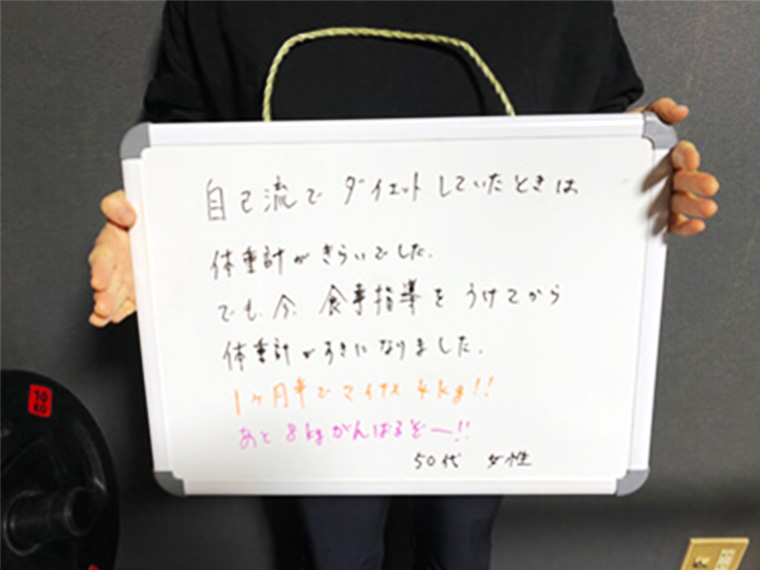 自己流で ダイエットしていたときは
体重計がきらいでした.
でも、今、食事指導をうけてから
体重計がすきになりました.
1ヶ月半でマイナス4kg!!
あと8kgがんばるぞ〜!!
50代 女性
10
KG